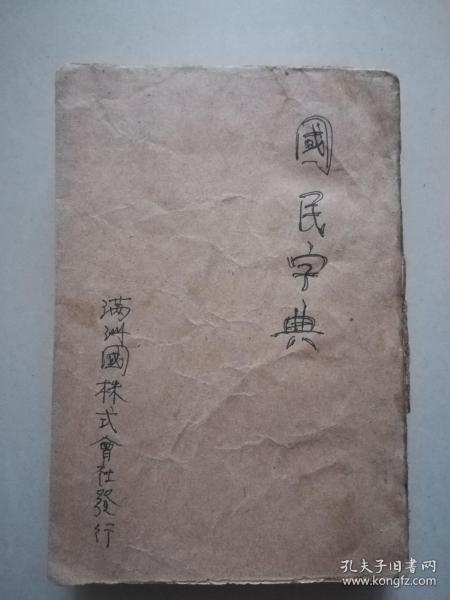 國民字典
满洲國株式會社發行
孔夫子旧书网
www.kongfz.com